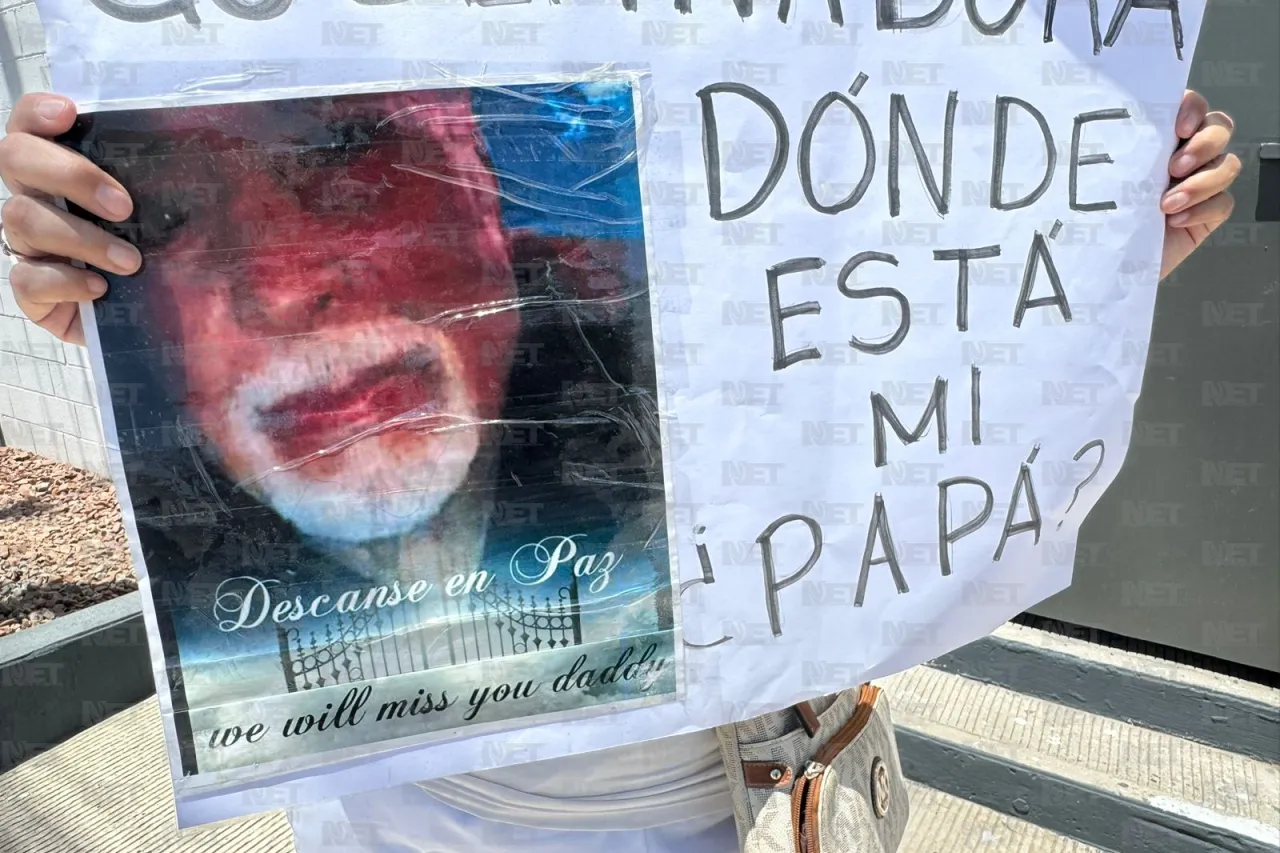 GOBERNADORA
DÓNDE
ESTÁ
MI
¿PAPÁ?
Descanse en Paz
we will miss you daddy